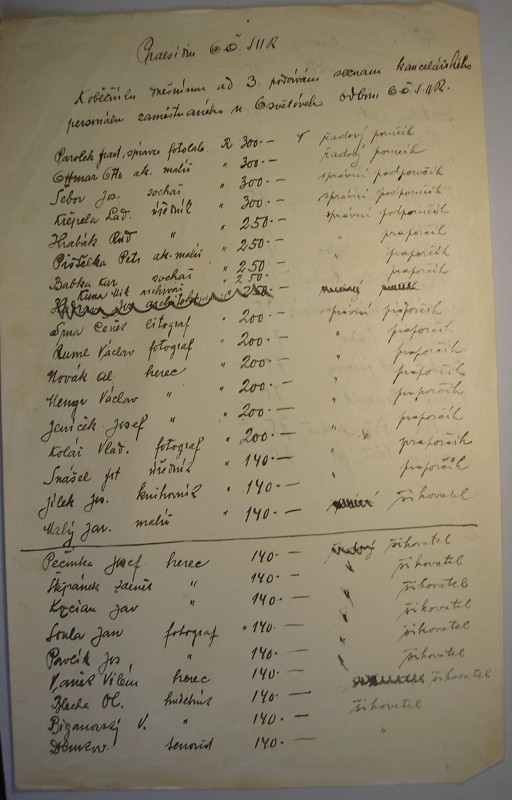 Praesidiu O.Č.S.N.R
K oběžníku dnešnímu ad 3. podávám seznam kancelářského
personálu zaměstnaného u Osvětového odboru O.Č.S.N.R.
Parolek Frant. správce fotolab. R 300.— řadový poručík
Ottmar Otto ak. malíř " 300.— řadový poručík
Sebor Jos. sochař " 300.— správní podporučík
Křepela Lad. úředník " 300.— správní podporučík
Hrabák Rud " " 250.— správní podporučík
Pištělka Petr ak. malíř " 250.— " praporčík
Babka Kar sochař " 250 — " praporčík
Kuna Mik " 250.— praporčík
Srna Čeněk litograf " 200.— správní praporčík
Ruml Václav fotograf " 200.— " praporčík
Novák Al herec " 200.— " praporčík
Menge Václav " " 200.— " praporčík
Jeníček Josef " " 200.— " praporčík
Kolář Vlad. fotograf " 200.— " praporčík
Snášel úředník " 140.— " praporčík
Jílek Jos. knihovník " 140.— " praporčík
Malý Jar. malíř " 140.— šikovatel
Pečinka Josef herec 140.— šikovatel
Štěpánek Zdeněk " 140.— " šikovatel
Kocian Jar " 140.— " šikovatel
Soula Jan fotograf " 140.— " šikovatel
Pavlík Jos " 140.— " šikovatel
Vaněk Vilém herec 140.— šikovatel
Blecha Ol. hudebník 140.— šikovatel
V. " 140.—
Demkov 140.— "